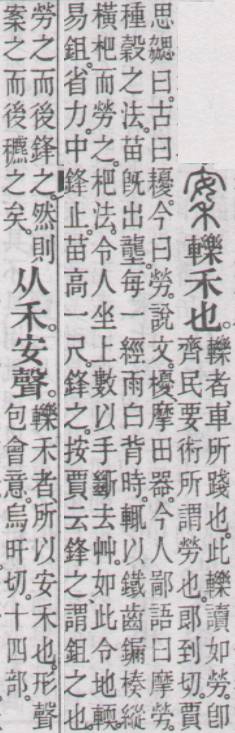 轢禾也。
轢者、車所踐也。此轢讀如勞。卽
齊民要術所謂勞也。郎到切。賈
思勰曰。古曰耰。今曰勞。說文。櫌、摩田器。今人鄙語曰摩勞。
種穀之法。苗旣出壟。每一經雨白背時。輒以鐵齒鎘楱縱
橫杷而勞之。杷法。令人坐上。數以手斷去艸。如此令地輭。
易鉏省力。中鋒止。苗高一尺。鋒之。按賈云鋒之、謂鉏之也。
勞之而後鋒之。然則
案之而後穮之矣。
从禾。安聲。
轢禾者、所以安禾也。形聲
包會意。烏旰切。十四部。